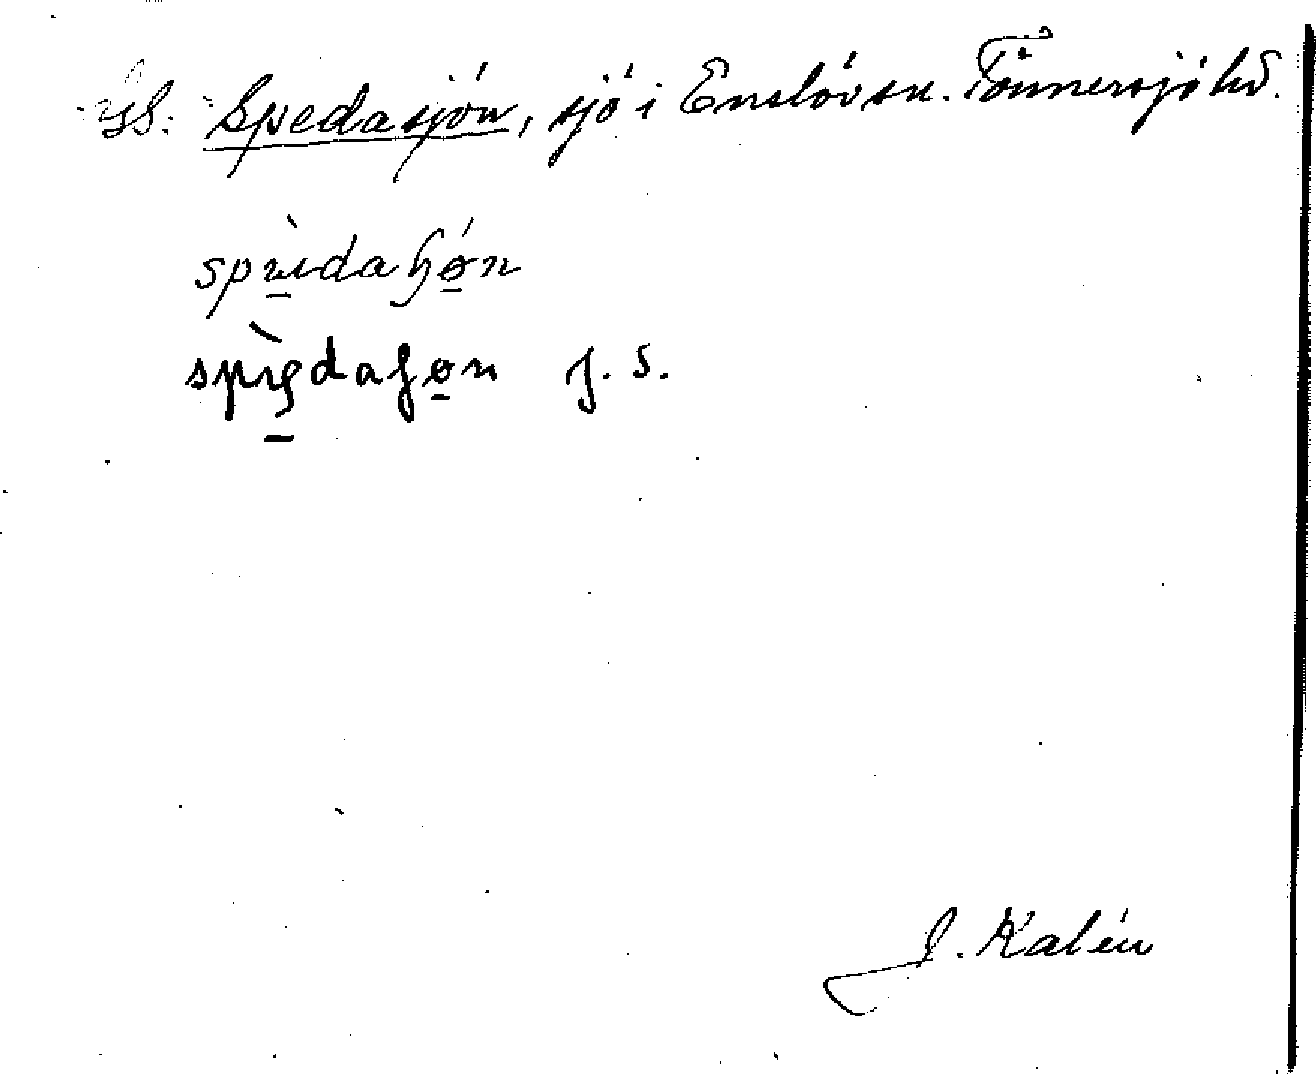 Spedasjön, sjö i Enslövs sn. Tönnersjö hd.
spìdaɧǿn
spìędaɧøn f. s.
J. Kalén